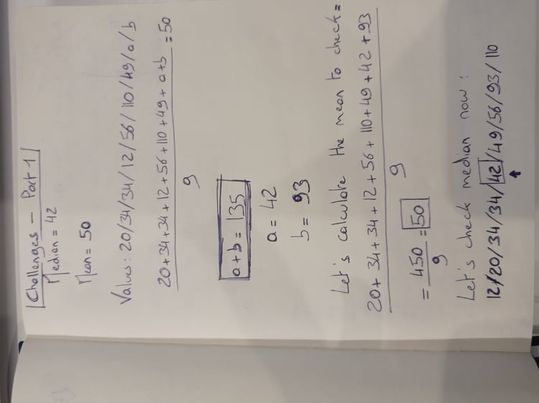 Challenges - Part 1
Median = 42
Mean = 50
Values: 20/34/34/12/56/110/49/a/b
20+34+34+12+56+110+49+a+b = 50
9
a+b = 135
a = 42
b = 93
Let's calculate the mean to check=
20+34+34+12+56+110+49+42+93
9
= 450 = 50
9
Let's check median now:
12/20/34/34/42/49/56/93/110